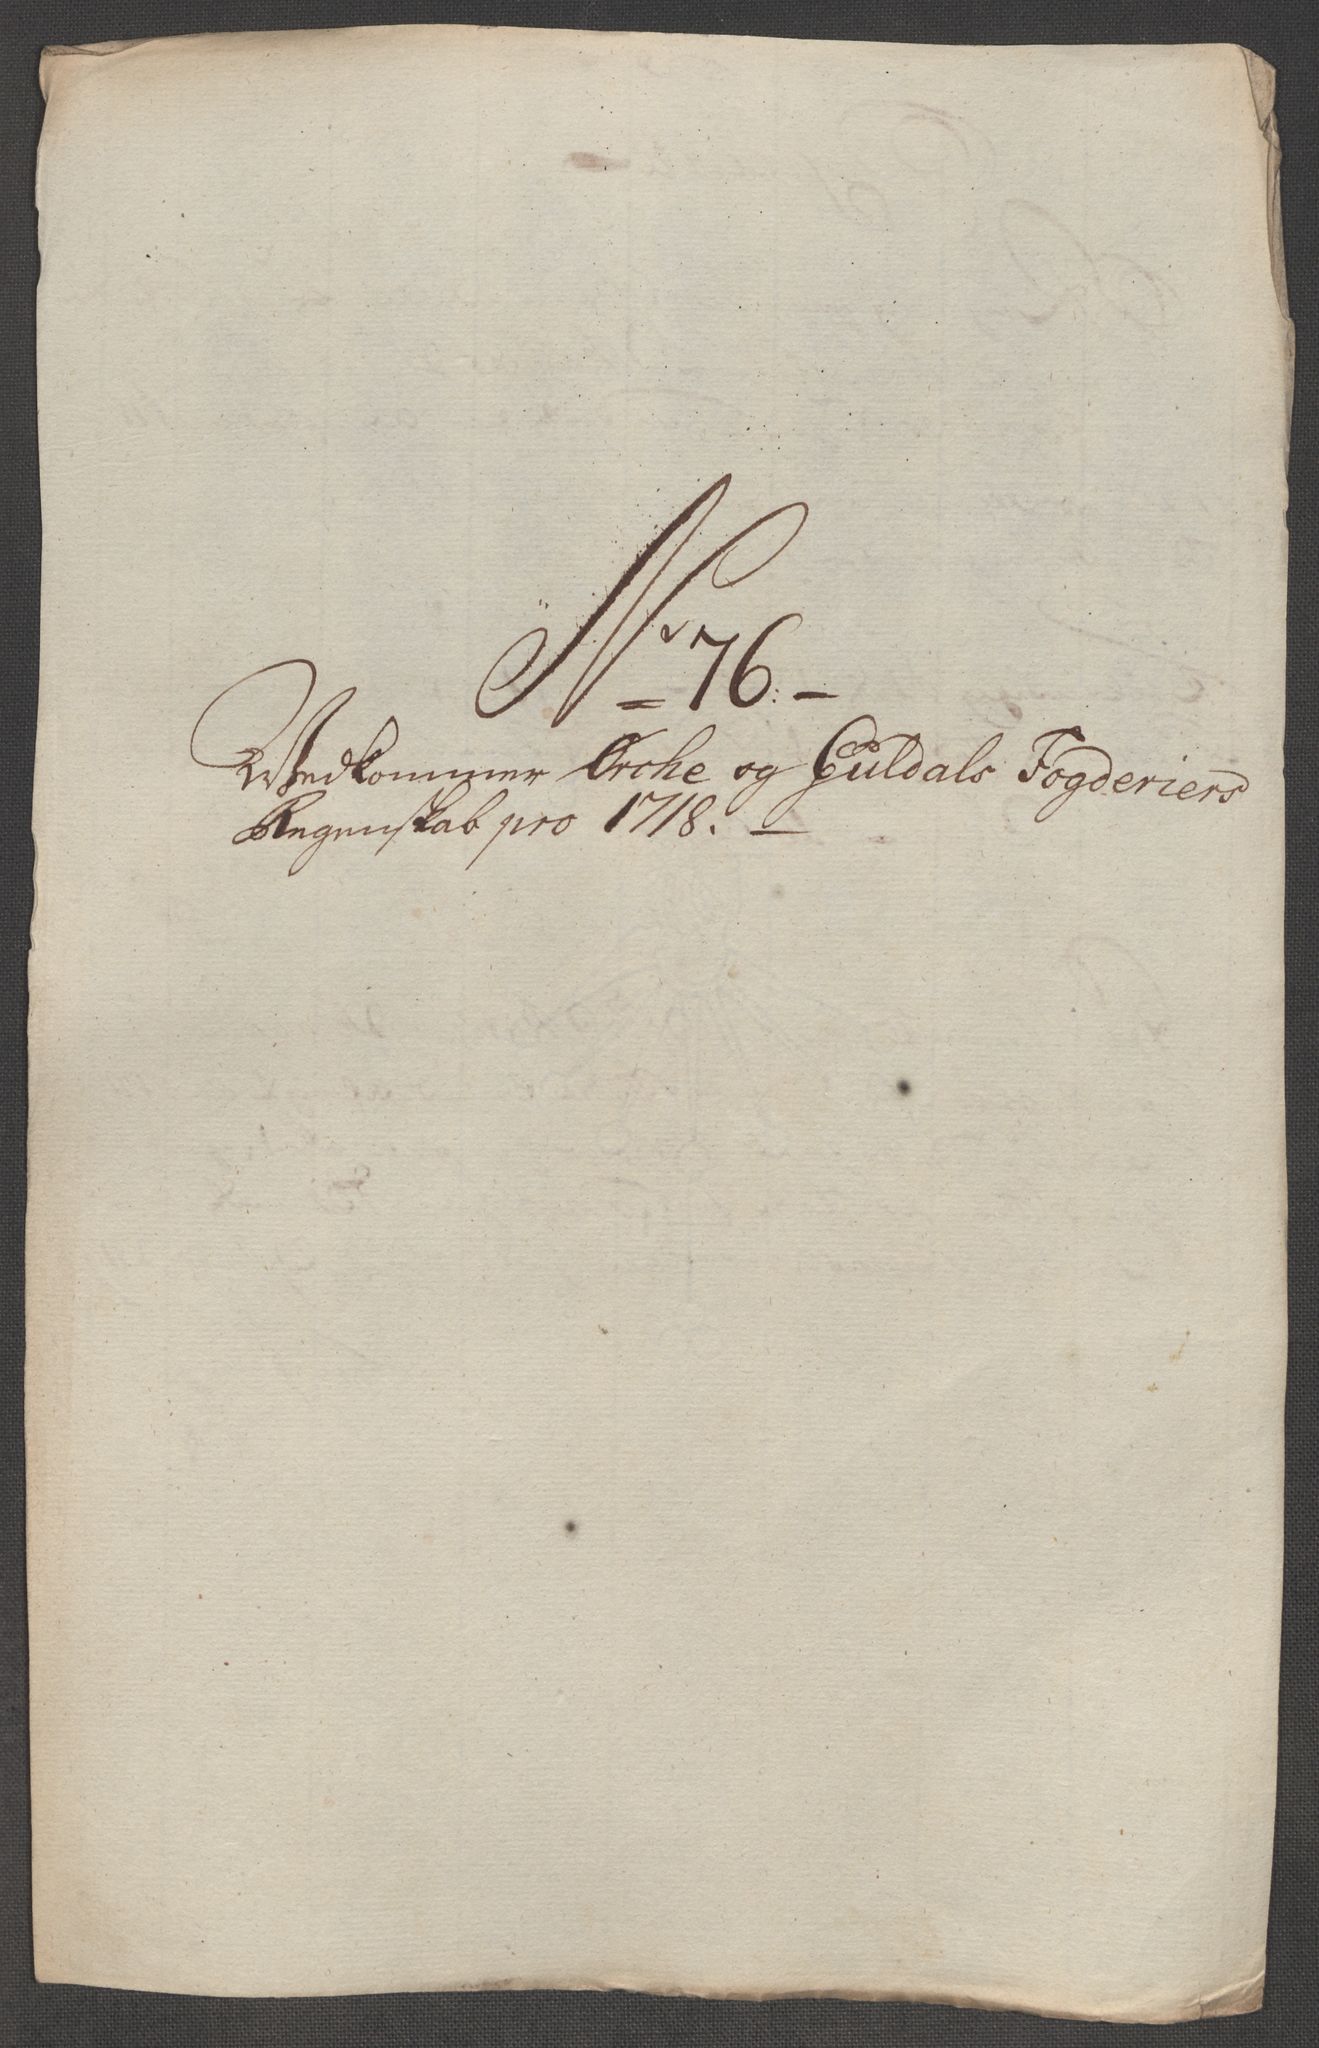 Nr 76.
Vedkommer Orche og Guldals Fogderiers
Regenskab pro 1718.